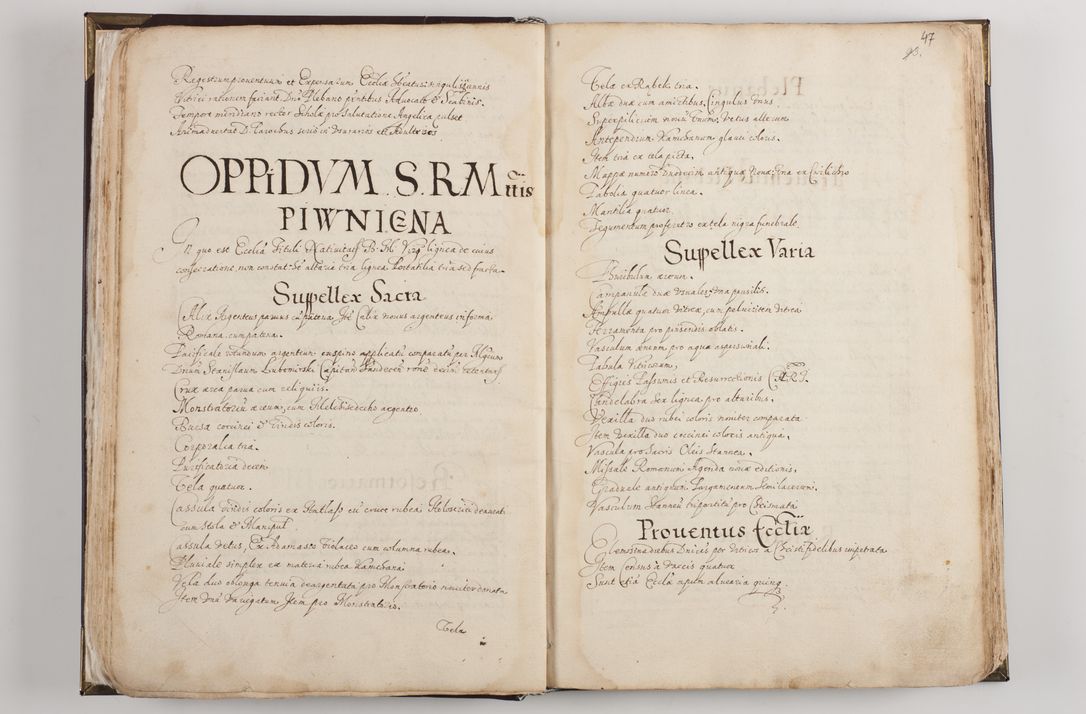 Regestrum prouentuum et Expensarum Ecclię Vitrici singulis annis
Vitrici rationem faciant Dno Plebano pntibus Aduocato & Scabinis.
Tempore meridiano rector Scholæ pro Salutatione Angelica pulset
Animaduertat D. Parochus serio in Vsurarios et Adulteros
OPPiDVM S. R. Mttis
PIWNICNA
In quo est Ecclia Tituli Natiuitatis B. M. Virg lignea de cuius
consecratione non constat. Et altaria tria lignea Portatilia tria sed fracta.
Suppellex Sacra
Calix Argenteus paruus cu patena. Itē Calix nouus argenteus in forma
Romana cum patena.
Pacificale rotundum argenteum cuspino applicatū comparatū per Illgium
Dnum Stanislaum Lubomirski Capitan Sandecen
Crux ærea parua cum reliquiis.
Monstratoriū æreum, cum Melchisedecho argenteo.
Bursa coccinei & viridis coloris.
Corporalia tria.
Purificatoria decem
Tela quatuor.
Cassula viridis coloris ex Hatlass cū cruce rubea Holosericū deaurati
cum Stola & Manipul.
Cassula vetus, Ex Adamasco Violaceo cum columna rubea.
Pluuiale simplex ex materia rubea Kamchana
Vela duo oblonga tenuia deargentata pro Monstratorio nouiter donata
Item Vnū variegatum Item pro Monstratorio.
Tela
47
93.
Tela ex Rabek tria.
Albæ duæ cum amictibus, Cingulus vnus
Superpiliceum nouū vnum, Vetus alterum
Antependium Kamchanum glauci coloris.
Item tria ex tela picta.
Mappæ numero Duodecim antiquæ Nouæ Vna ex Cwilicho
Tobolia quatuor linea.
Mantilia quatuor.
Tegumentum pro feretro ex tela nigra funebrale.
Suppellex Varia
Thuribulum æreum.
Campanulæ duæ vsuales, vna pensilis.
Ampullæ quatuor vitreæ, cum peluiculis vitreis
Ferramenta pro pinsendis oblatis.
Vasculum æneum pro aqua aspersionali.
Tabula Vitricorum,
Effigies Passionis et Resurrectionis CHRI.
Candelabra sex lignea pro altaribus.
Vexilla duo rubei coloris nouiter comparata
Item Vexilla duo coccinei coloris antiqua.
Vascula pro Sacris Oleis Stannea.
Missale Romanum Agenda nouæ editionis.
Graduale antiquum Pargameneum Semilacerum.
Vasculum stanneū tripartitū pro Chrismate
Prouentus Ecclię
Elemosina diebus Dnicis per Vitricos a Christi fidelibus impetrata
Item Census a Vaccis quatuor
Sunt etiā Ecclę aputn aluearia quinq